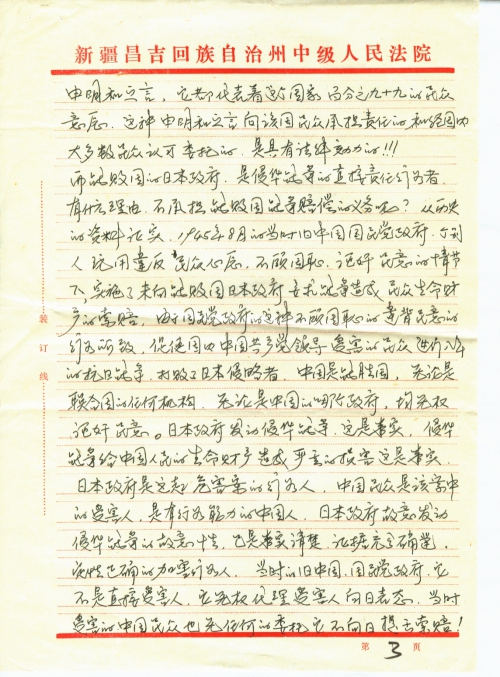 新疆昌吉回族自治州中级人民法院
申明和立言，它都代表着这个国家百分之九十九的民众
意愿。这种申明和立言向该国民众承担责任的和经国内
大多数民众认可委托的，是具有法律效力的!!!
而战败国的日本政府，是侵华战争的直接责任行为者，
有什么理由，不承担战败国战争赔偿的义务呢？从历史
的资料证实，1945年8月的当时旧中国国民党政府，
人，违反民众心愿，不顾国耻，民意的情节
下，实施了未向战败国日本政府要求战争造成民众生命财
产的索赔，由于国民党政府的这种不顾国耻的违背民意的
行为所致，促使国内中国共产党领导受害的民众进行八年
的抗日战争，打败了日本侵略者，中国是战胜国，无论是
联合国的任何机构，无论是中国的哪个政府，均无权
民意。日本政府发动侵华战争，这是事实，侵华
战争给中国人民的生命财产造成严重的损害这是事实，
日本政府是这起危害案的行为人，中国民众是该案中
的受害人，是有行为能力的中国人，日本政府故意发动
侵华战争的故意十恶，已是事实清楚，证据充分确凿，
定性正确的加害行为人，当时的旧中国，国民党政府，它
不是直接受害人，它无权代理受害人向日表态，当时
受害的中国民众也无任何的委托它不向日提出索赔！
装订线
第 3 页